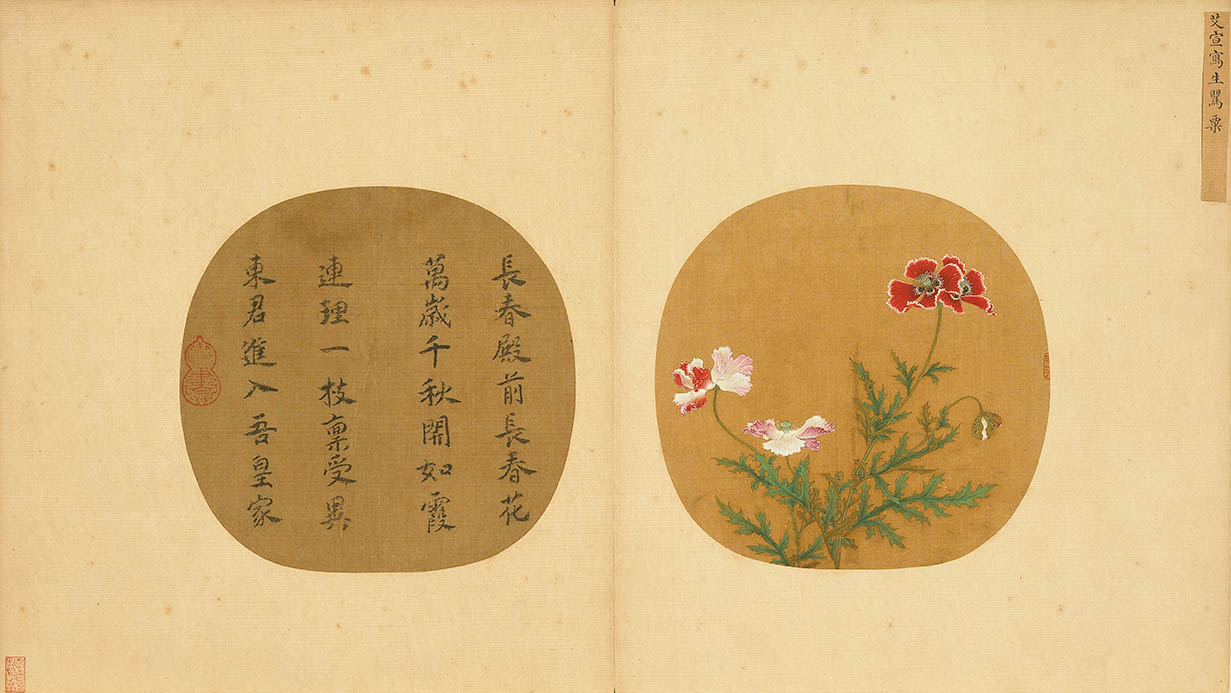 艾宣寫生罌粟
長春殿前長春花
萬歲千秋開如霞
連理一枝稟受異
東君進入吾皇家
御書